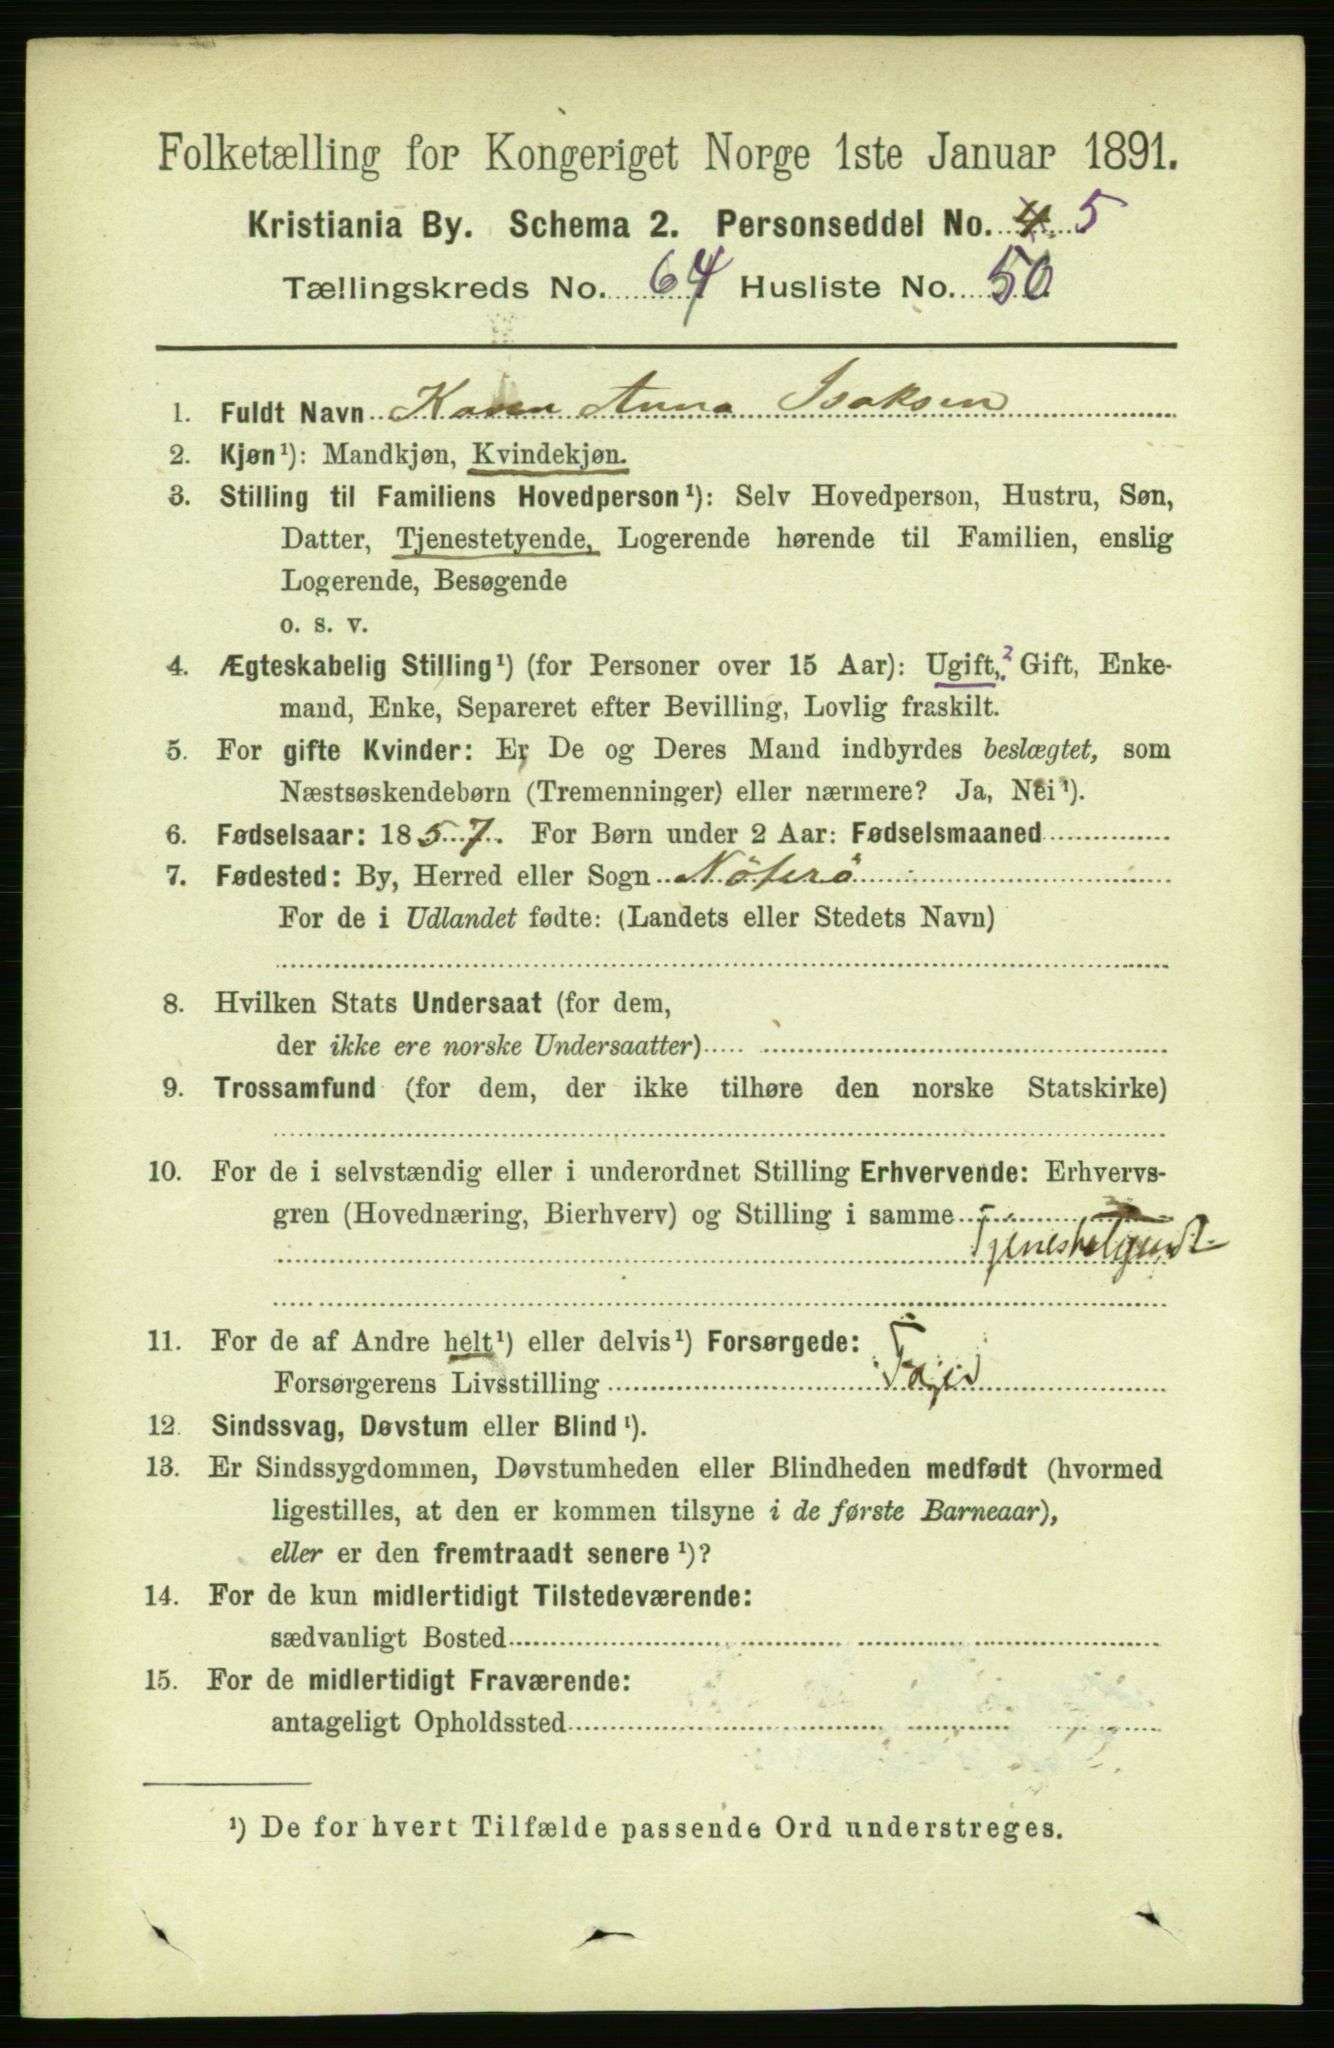 Folketælling for Kongeriget Norge 1ste Januar 1891.
Kristiania By. Schema 2. Personseddel No. 4 5
Tællingskreds No. 64 Husliste No. 50
1. Fuldt Navn Karen Anna Isaksen
2. Kjøn¹): Mandkjøn, Kvindekjøn.
3. Stilling til Familiens Hovedperson¹): Selv Hovedperson, Hustru, Søn,
Datter, Tjenestetyende, Logerende hørende til Familien, enslig
Logerende, Besøgende
o. s. v.
4. Ægteskabelig Stilling¹) (for Personer over 15 Aar): Ugift, 2 Gift, Enke-
mand, Enke, Separeret efter Bevilling, Lovlig fraskilt.
5. For gifte Kvinder: Er De og Deres Mand indbyrdes beslægtet, som
Næstsøskendebørn (Tremenninger) eller nærmere? Ja, Nei¹).
6. Fødselsaar: 1857. For Børn under 2 Aar: Fødselsmaaned
7. Fødested: By, Herred eller Sogn Nöterö
For de i Udlandet fødte: (Landets eller Stedets Navn)
8. Hvilken Stats Undersaat (for dem,
der ikke ere norske Undersaatter)
9. Trossamfund (for dem, der ikke tilhøre den norske Statskirke)
10. For de i selvstændig eller i underordnet Stilling Erhvervende: Erhvervs-
gren (Hovednæring, Bierhverv) og Stilling i samme
11. For de af Andre helt¹) eller delvis¹) Forsørgede:
Forsørgerens Livsstilling
12. Sindssvag, Døvstum eller Blind¹).
13. Er Sindssygdommen, Døvstumheden eller Blindheden medfødt (hvormed
ligestilles, at den er kommen tilsyne i de første Barneaar),
eller er den fremtraadt senere¹)?
14. For de kun midlertidigt Tilstedeværende:
sædvanligt Bosted
15. For de midlertidigt Fraværende:
antageligt Opholdssted
¹) De for hvert Tilfælde passende Ord understreges.